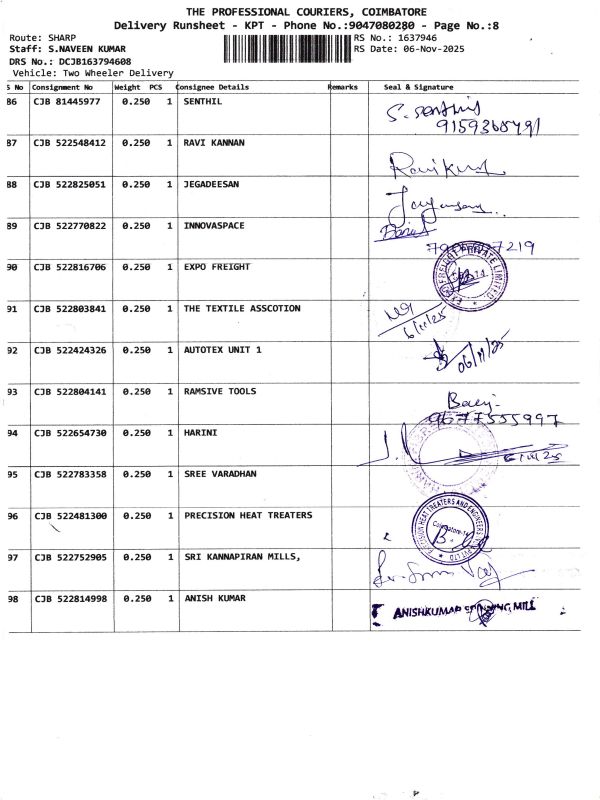 THE PROFESSIONAL COURIERS, COIMBATORE
Delivery Runsheet - KPT - Phone No.:9047080280 - Page No.:8
Route: SHARP
Staff: S.NAVEEN KUMAR
DRS No.: DCJB163794608
Vehicle: Two Wheeler Delivery
RS No.: 1637946
RS Date: 06-Nov-2025
S No Consignment No Weight PCS Consignee Details Remarks Seal & Signature
86 CJB 81445977 0.250 1 SENTHIL S. Senthil
9159368491
87 CJB 522548412 0.250 1 RAVI KANNAN
88 CJB 522825051 0.250 1 JEGADEESAN
89 CJB 522770822 0.250 1 INNOVASPACE
7219
90 CJB 522816706 0.250 1 EXPO FREIGHT EXPO FREIGHT PRIVATE LIMITED
91 CJB 522803841 0.250 1 THE TEXTILE ASSCOTION
6/11/25
92 CJB 522424326 0.250 1 AUTOTEX UNIT 1 06/11/25
93 CJB 522804141 0.250 1 RAMSIVE TOOLS
9677555997
94 CJB 522654730 0.250 1 HARINI
6/11/25
95 CJB 522783358 0.250 1 SREE VARADHAN
96 CJB 522481300 0.250 1 PRECISION HEAT TREATERS PRECISION HEAT TREATERS AND ENGINEERS PVT LTD
Coimbatore
97 CJB 522752905 0.250 1 SRI KANNAPIRAN MILLS,
98 CJB 522814998 0.250 1 ANISH KUMAR ANISHKUMAR SPINNING MILL